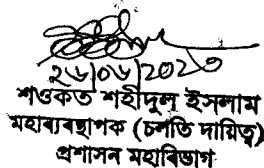 ২৬/০৬/২০২৩
শওকত শহীদুল ইসলাম
মহাব্যবস্থাপক (চলতি দায়িত্ব)
প্রশাসন মহাবিভাগ